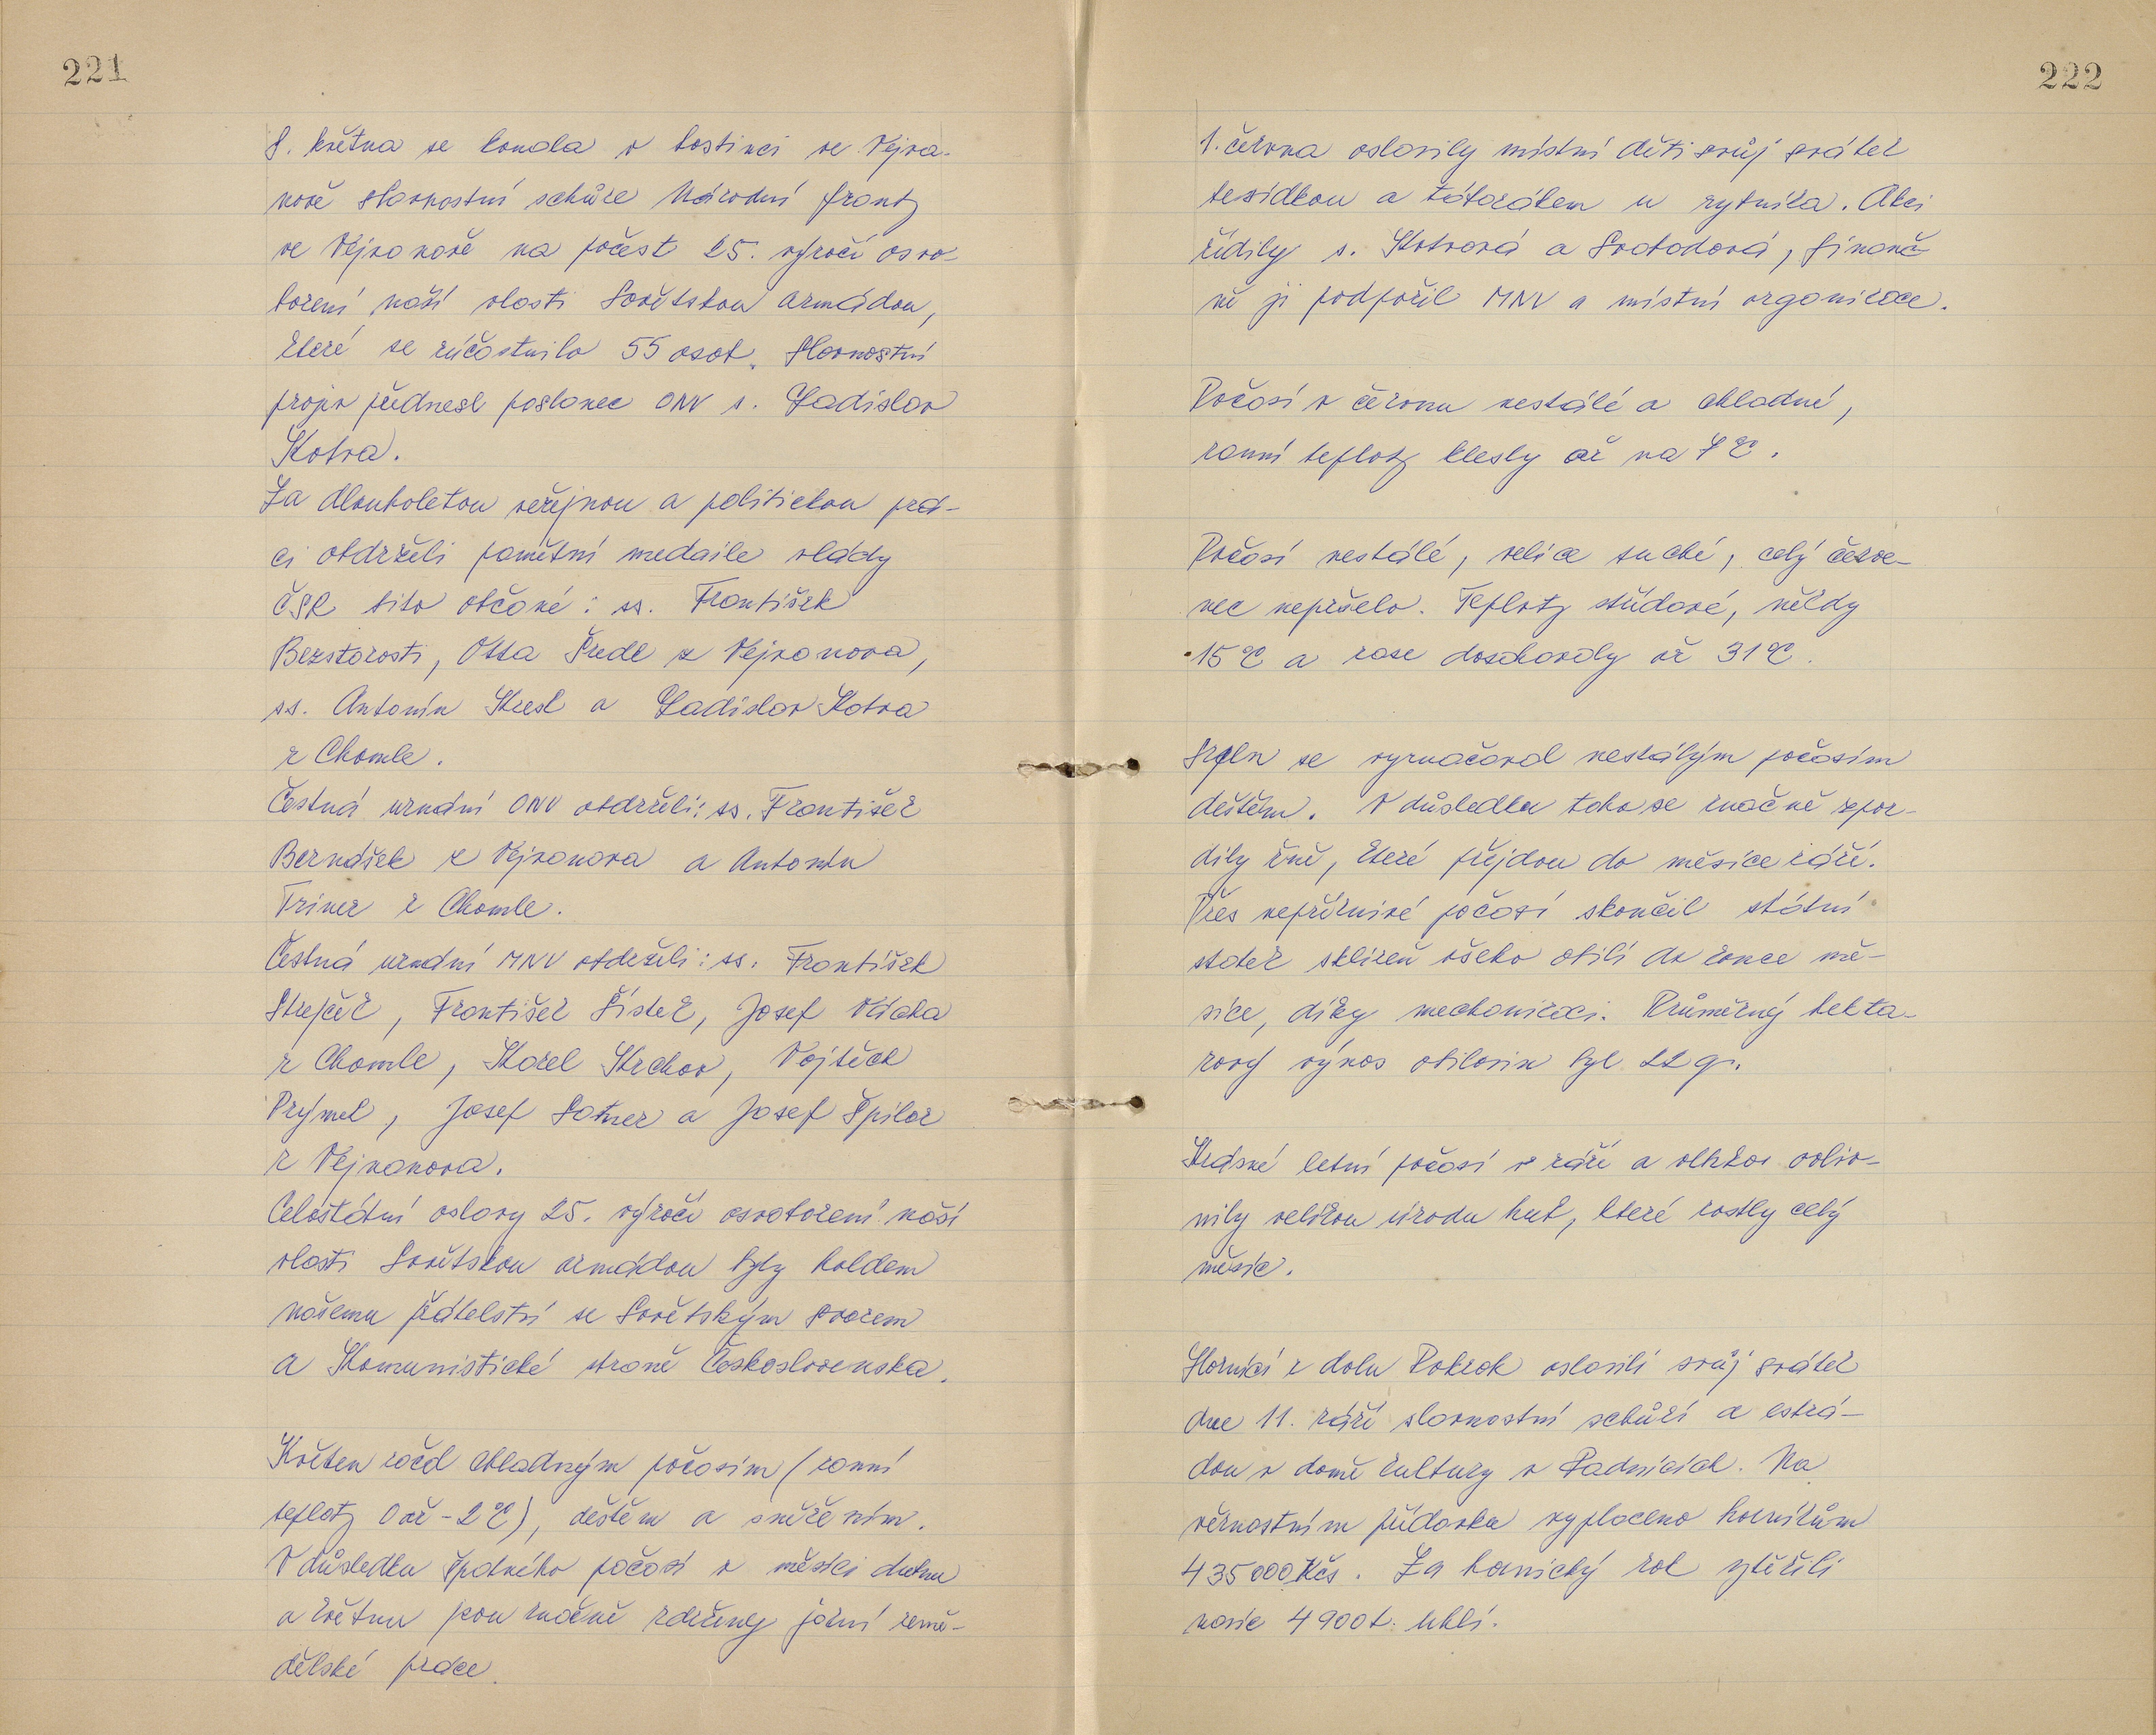 221
8. května se konala v hostinci ve Vejva-
nově slavnostní schůze Národní fronty
ve Vejvanově na počest 25. výročí osvo-
bození naší vlasti Sovětskou armádou,
které se zúčastnilo 55 osob. Slavnostní
projev přednesl poslanec ONV s. Ladislav
Kotva.
Za dlouholetou veřejnou a politickou prá-
ci obdrželi pamětní medaile vlády
ČSR tito občané: ss. František
Bezstarosti, Otta Šredl z Vejvanova,
ss. Antonín Kresl a Ladislav Kotva
z Chomle.
Čestná uznání ONV obdrželi: ss. František
Bernášek z Vejvanova a Antonín
Triner z Chomle.
Čestná uznání MNV obdrželi: ss. František
Strejček, František Šístek, Josef
z Chomle, Karel Krchov, Vojtěch
Prýmel, Josef Sotner a Josef Špilar
z Vejvanova.
Celostátní oslavy 25. výročí osvobození naší
vlasti Sovětskou armádou byly holdem
našemu přátelství se Sovětským svazem
a Komunistické straně Československa.
Květen začal chladným počasím (ranní
teploty 0 až -2°C), deštěm a sněžením.
V důsledku špatného počasí v měsíci dubnu
a květnu jsou značně zdrženy jarní země-
dělské práce.
222
1. června oslavily místní děti svůj svátek
besídkou a táborákem u rybníka. Akci
řídily s. Kotvová a Svobodová, finanč-
ně ji podpořil MNV a místní organizace.
Počasí v červnu nestálé a chladné,
ranní teploty klesly až na 7°C.
Počasí nestálé, velice suché, celý červe-
nec nepršelo. Teploty střídavé, někdy
15°C a zase doschovaly až 31°C.
Srpen se vyznačoval nestálým počasím
deštěm. V důsledku toho se značně zpoz-
dily žně, které přejdou do měsíce září.
Přes nepříznivé počasí skončil státní
statek sklizeň všeho obilí do konce mě-
síce, díky mechanizaci. Průměrný hekta-
rový výnos obilovin byl 22 q.
Krásné letní počasí v září a vlhkost ovliv-
nily velikou úrodu hub, které rostly celý
měsíc.
Horníci z dolu Pokrok oslavili svůj svátek
dne 11. září slavnostní schůzí a estrá-
dou v domě kultury v Radnicích. Na
věrnostním přídavku vyplaceno horníkům
435000 Kčs. Za hornický rok vytěžili
navíc 4900 t. uhlí.